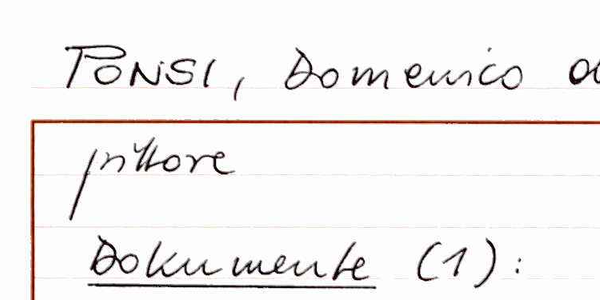 PONSI, Domenico
pittore
Dokumente (1):